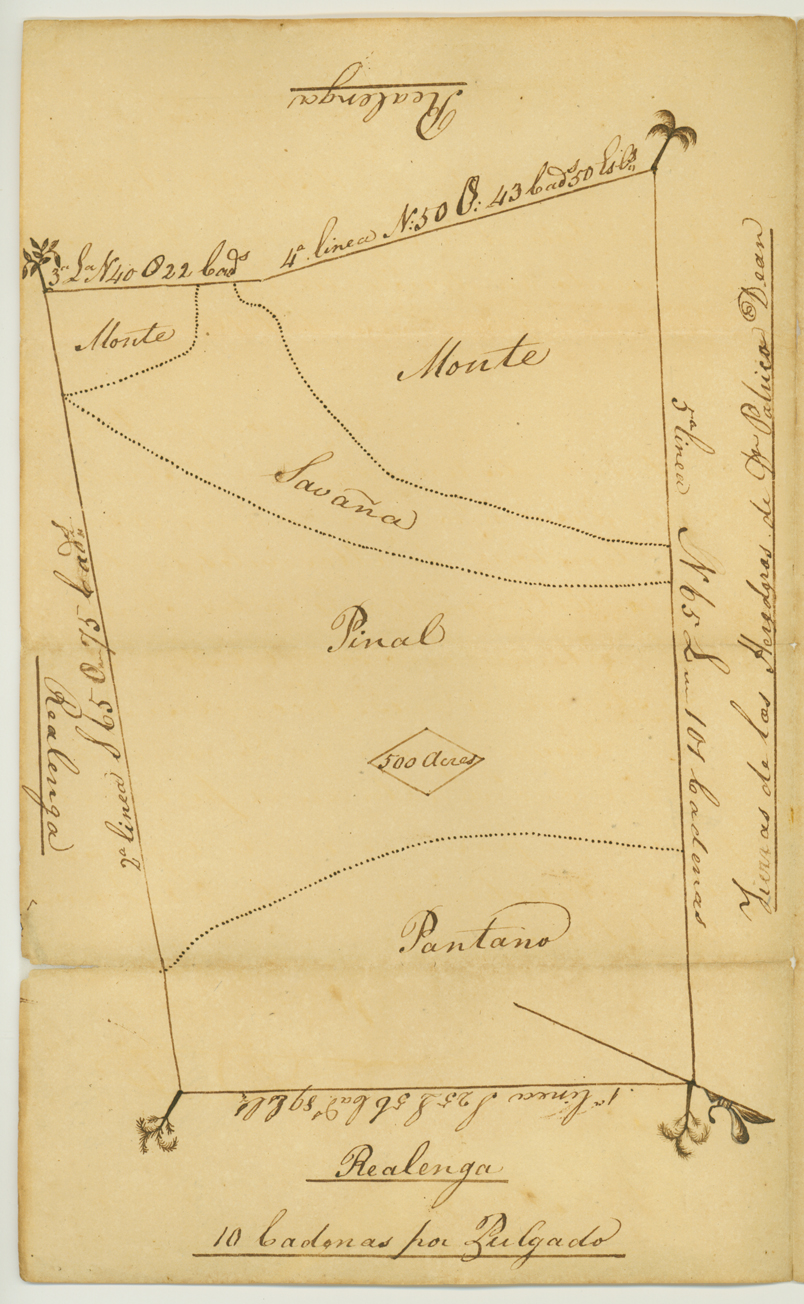 Realenga
4ª linea N: 50 O: 43 Cad.s 50 Esl.s
3ª La N 40 O 22 Cad.s
Monte
Monte
5ª linea N 65 L 101 Cadenas
Tierras de los Herederos de Dn Patricio Dean
Savaña
2ª linea S 65 O 75 Cad.s
Realenga
Pinal
500 Acres
Pantano
1ª linea S 25 L 56 Cad.s 89 Esl.s
Realenga
10 Cadenas por Pulgado